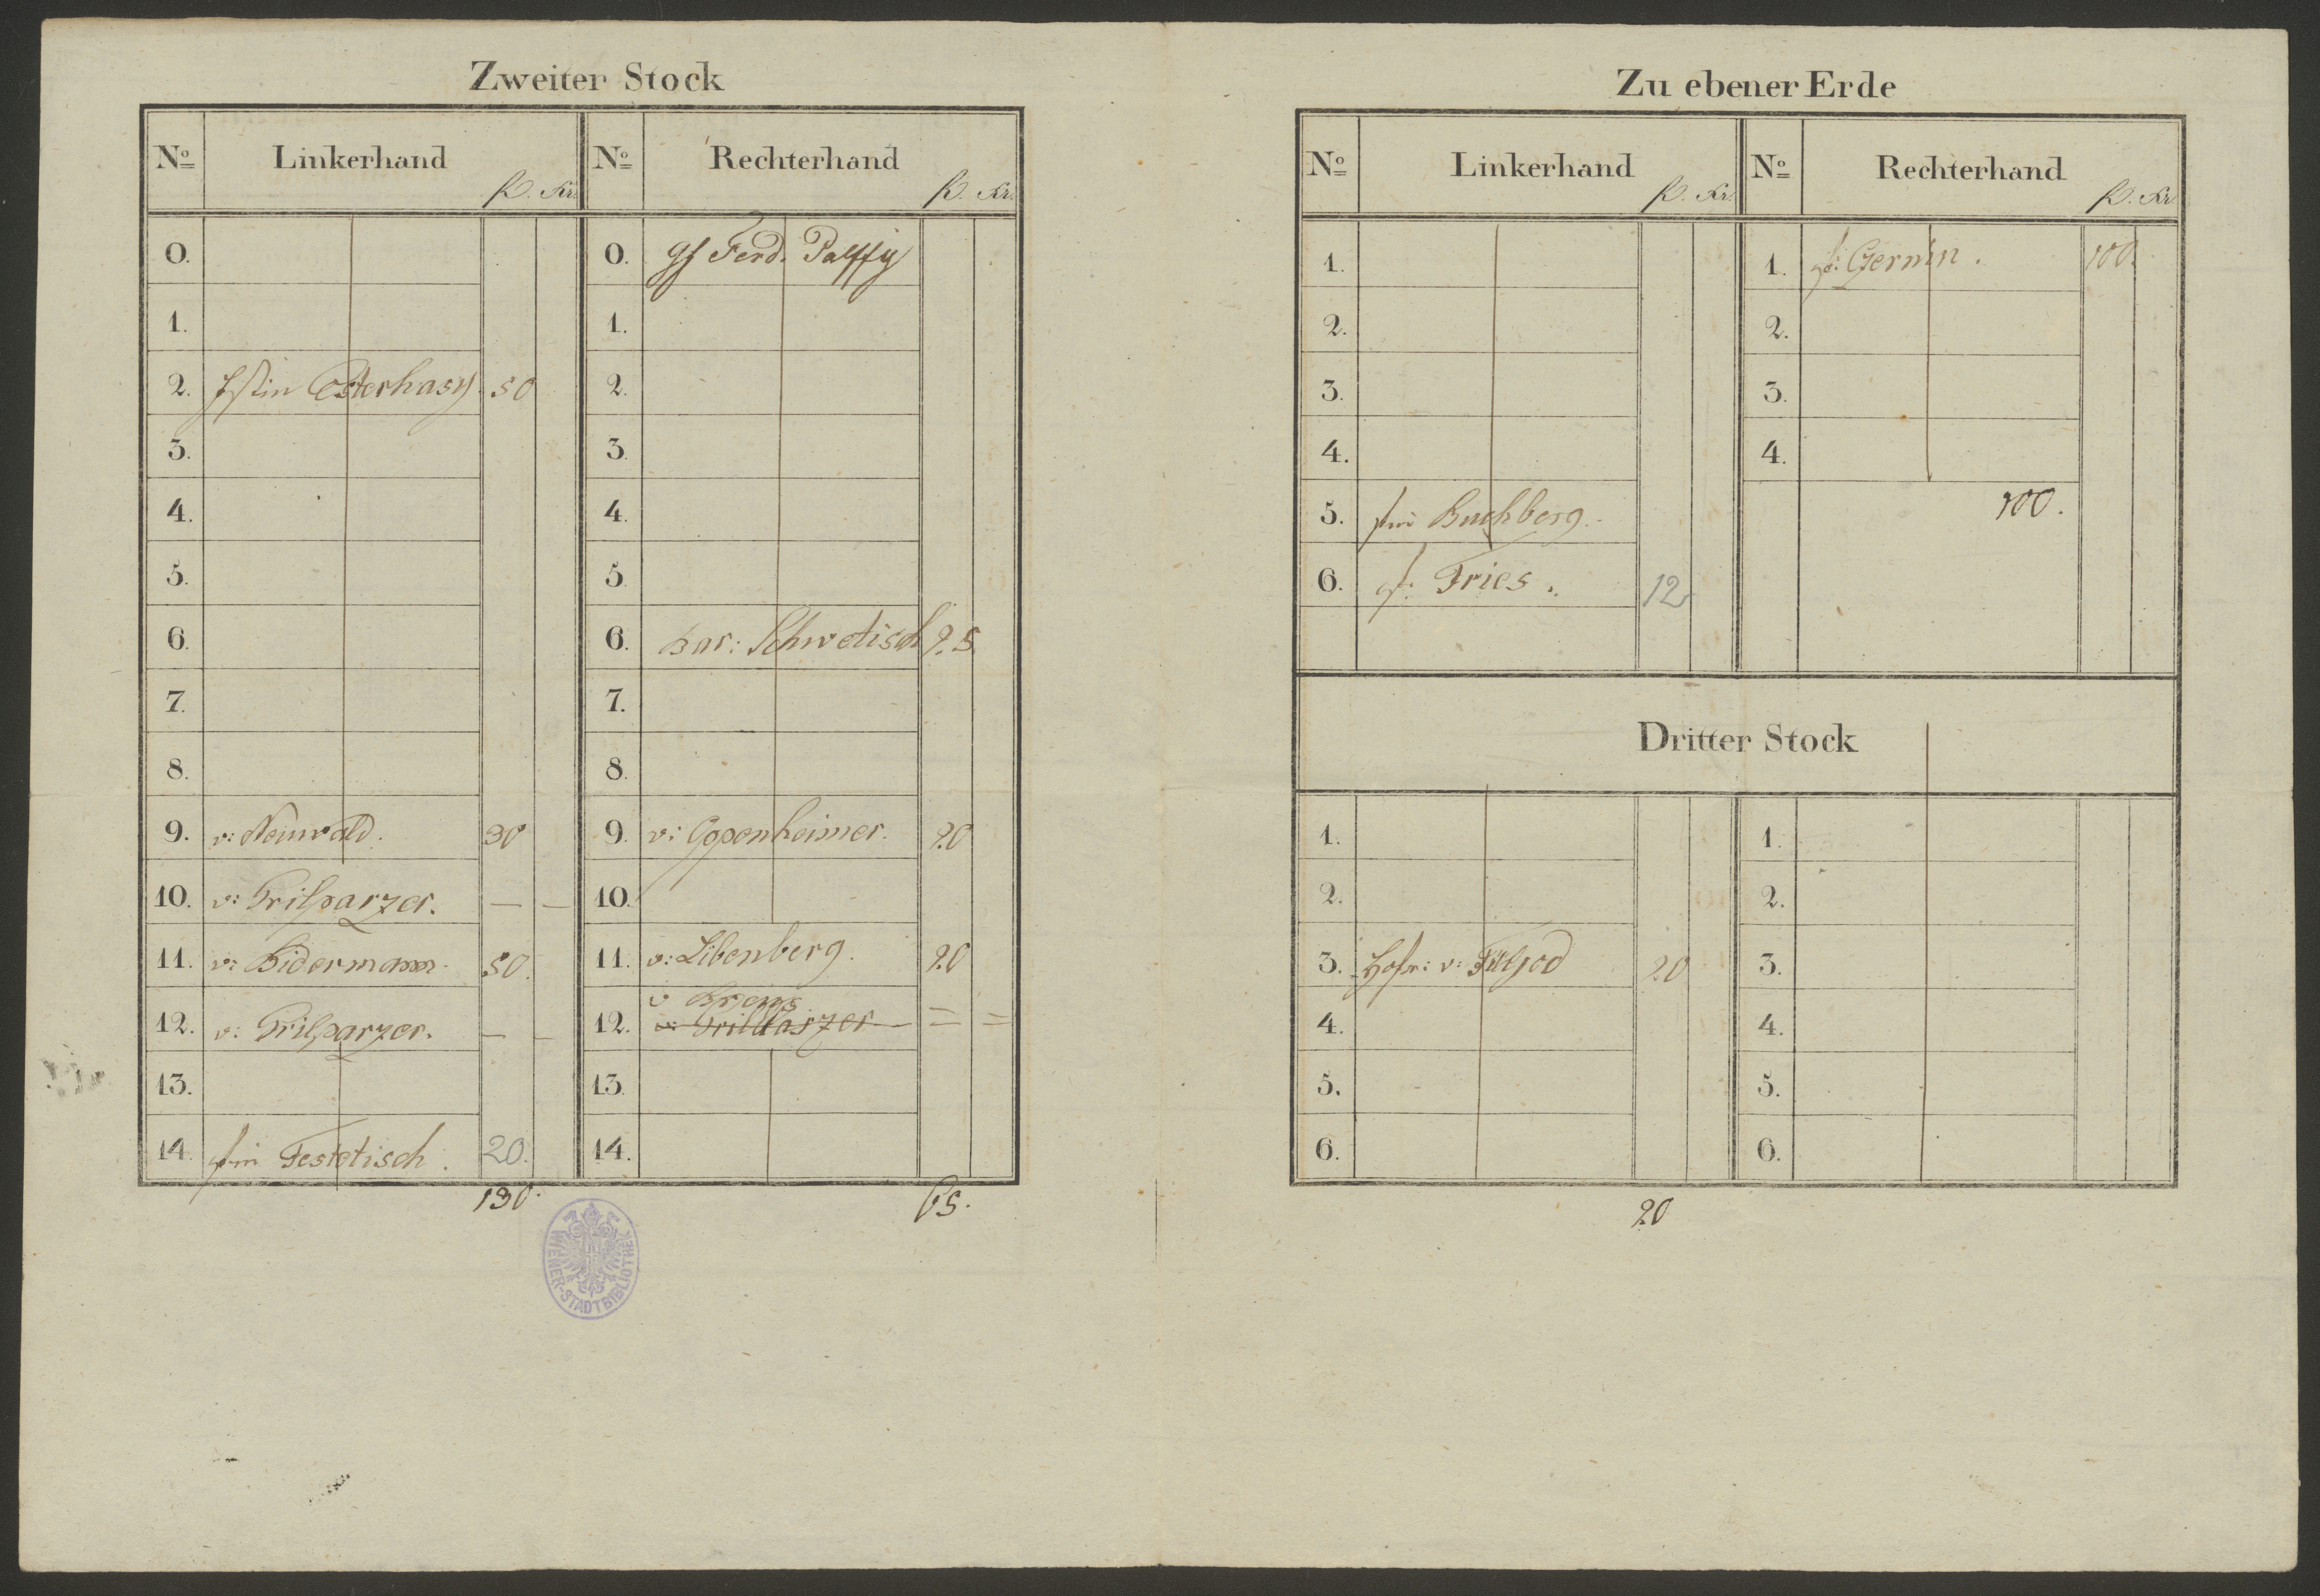 Zweiter Stock
No Linkerhand fl. Kr. No Rechterhand fl. Kr.
0. 0. gf Ferd. Palffy
1. 1.
2. fstin Esterhasy. 50 2.
3. 3.
4. 4.
5. 5.
6. 6. Bar: Schwetisch 25.
7. 7.
8. 8.
9. v: Neuwald. 30 9. v: Oppenheimer. 20
10. v: Grilparzer. — — 10.
11. v: Bidermann. 50. 11. v: Libenberg. 20
v
12. v: Grilparzer. — — 12. v: Grillparzer — = =
13. 13.
14. gfin Festetisch. 20. 14.
130. 65.
WIENER-STADTBIBLIOTHEK
Zu ebener Erde
No Linkerhand fl. Kr. No Rechterhand fl. Kr.
1. 1. gf: Czernin. 100.
2. 2.
3. 3.
4. 4.
5. Buchberg. 100.
6. gf: Fries. 12
Dritter Stock
1. 1.
2. 2.
3. Hofr: v: 20 3.
4. 4.
5. 5.
6. 6.
20